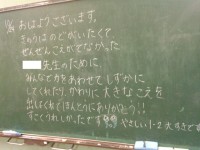 おはようございます。
きのうはのどがいたくて、
ぜんぜんこえがでなかった
先生のために、
みんなで力をあわせてしずかに
してくれたり、かわりに大きなこえを
出してくれてほんとうにありがとう!!
すごくうれしかったです
やさしい1-2大すきです